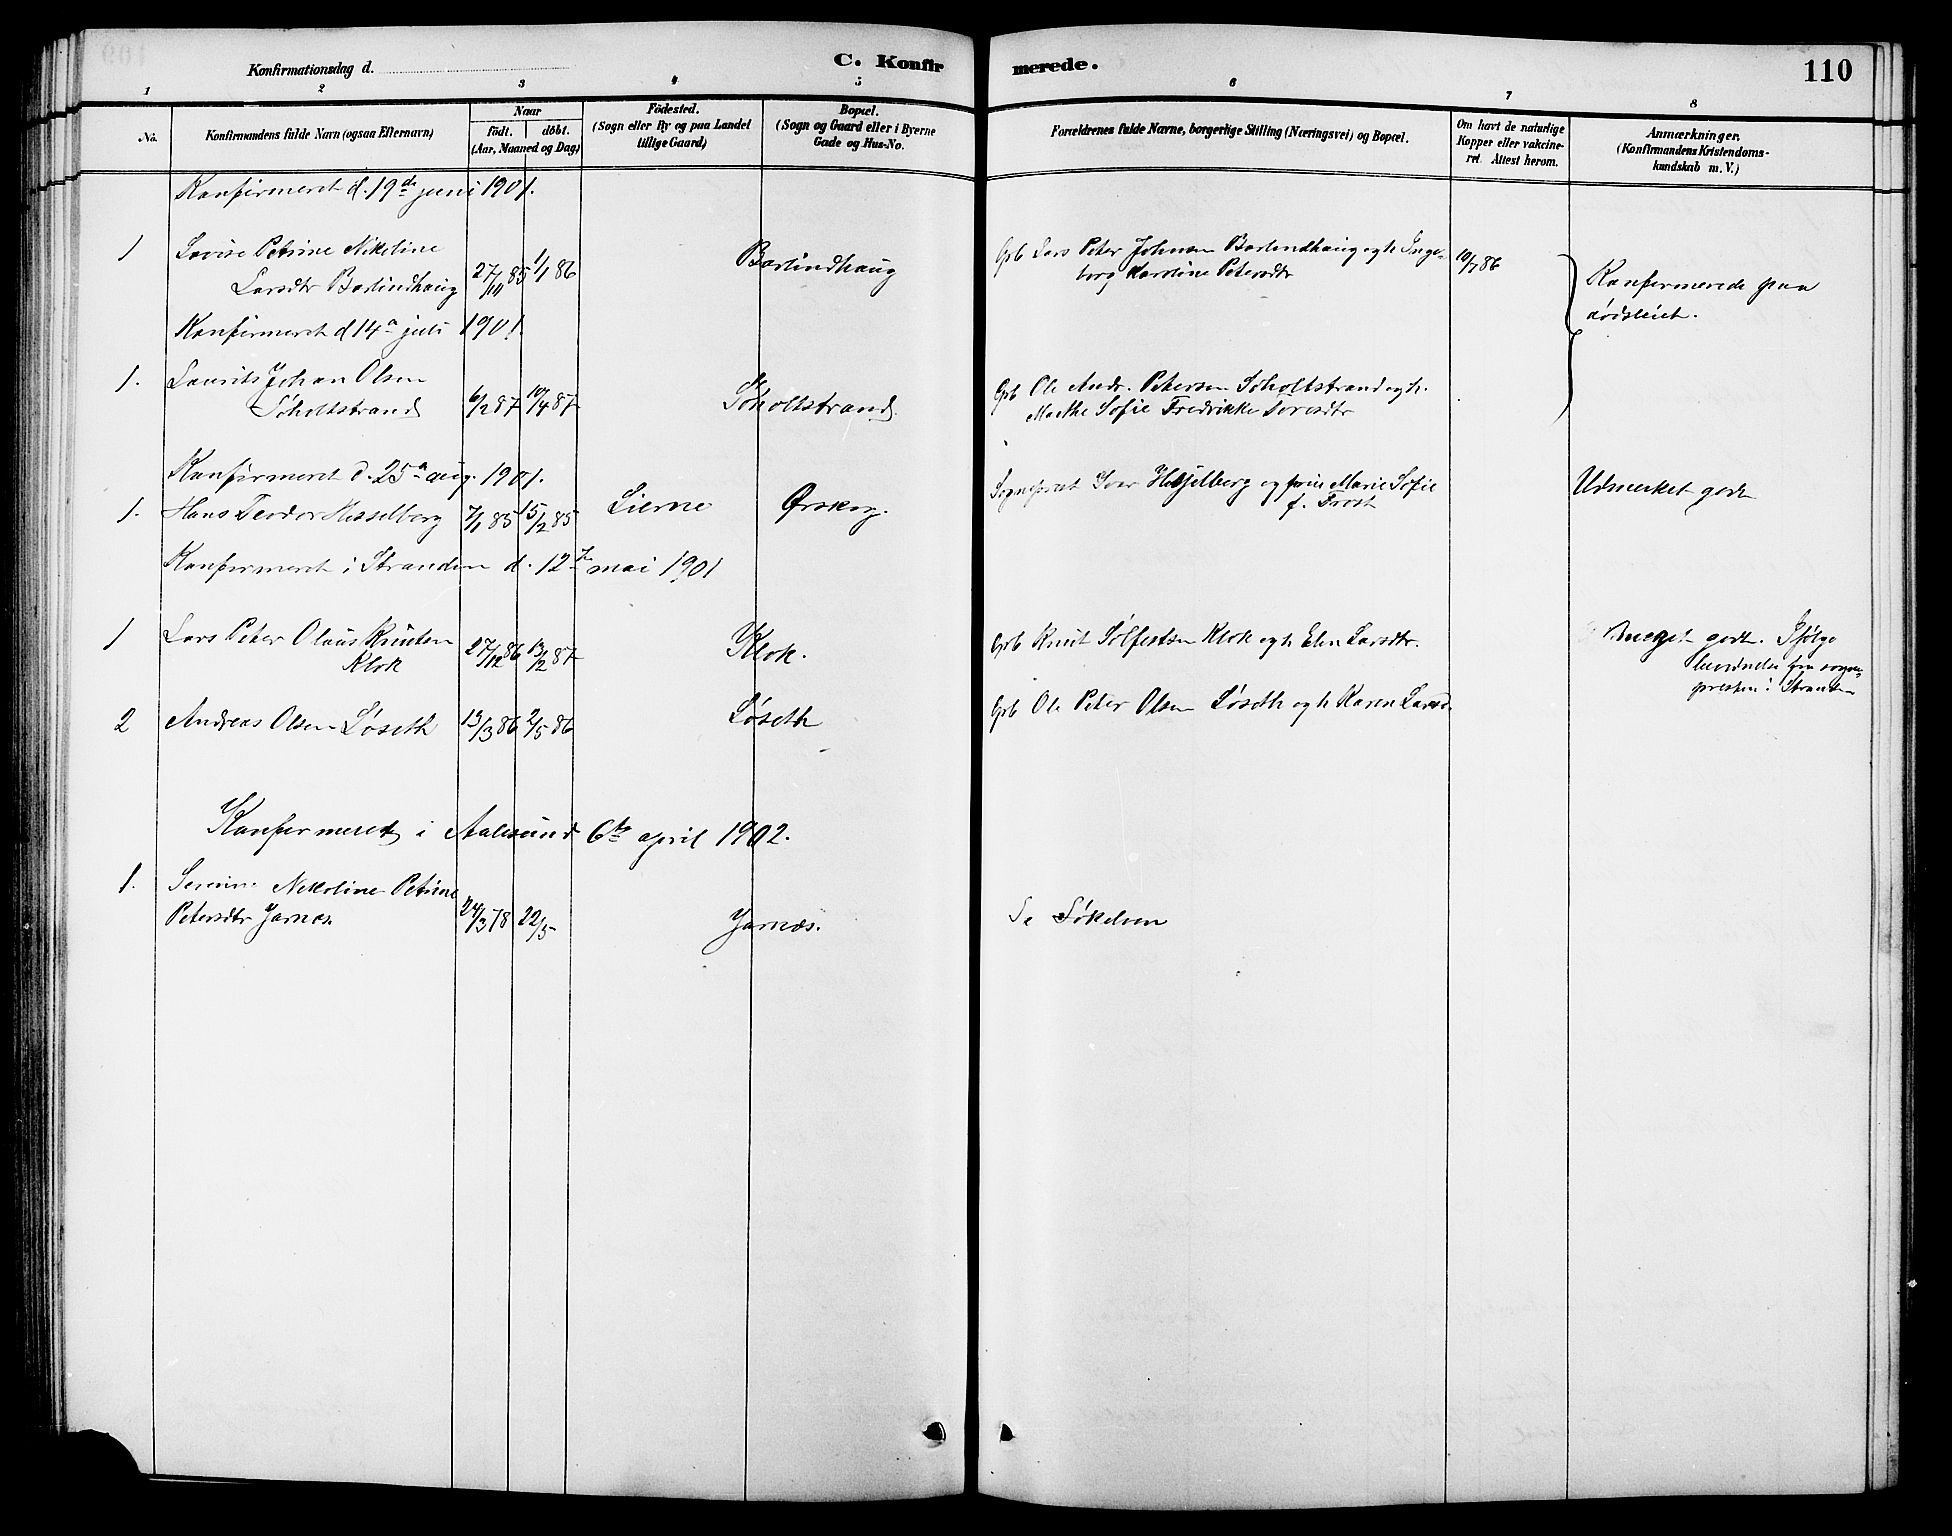 Konfirmationsdag d.
C. Konfirmerede.
110
1 2 3 4 5 6 7 8
No.
Konfirmandens fulde Navn (ogsaa Efternavn)
Naar
födt. döbt.
(Aar, Maaned og Dag)
Födested.
(Sogn eller By og paa Landet
tillige Gaard)
Bopæl.
(Sogn og Gaard eller i Byerne
Gade og Hus-No.
Forældrenes fulde Navne, borgerlige Stilling (Næringsvei) og Bopæl.
Om havt de naturlige
Kopper eller vakcine-
ret. Attest herom.
Anmærkninger.
(Konfirmandens Kristendoms-
kundskab m. V.)
Konfirmeret d. 19de juni 1901.
1 Lovise Petrine Nikoline
Larsdtr Barlindhaug 27/11 85 1/1 86 Barlindhaug
Grb Lars Peter Johnsen Barlindhaug og h Inge-
borg Karoline Petersdtr 10/7 86
Konfirmerede paa
dødsleiet.
Konfirmeret d 14de juli 1901.
1. Laurits Johan Olsen
Søholtstrand 6/2 87 10/4 87 Søholtstrand.
Grb Ole Andr. Petersen Søholtstrand og h.
Marthe Sofie Fredrikke
Konfirmeret d. 25de aug. 1901.
1. Hans Teodor Hesselberg 7/1 85 15/2 85 Lierne Ørskog.
Sogneprest Ivar Hesselberg og frue Marie Sofie
f. Frost
Udmerket godt
Konfirmeret i Stranden d. 12te mai 1901
1 Lars Peter Olaus Knutsen
Klok 27/12 86 13/2 87 Klok.
Grb Knut Sølfestsen Klok og h Elen Larsdtr.
Meget godt. Ifølge
fra sogne-
presten i Stranden
2 Andreas Olsen Løseth 13/3 86 2/5 86 Løseth
Grb Ole Peter Olsen Løseth og h Karen Larsd.
Konfirmeret i Aalesund 6te april 1902.
1. Nikoline Petrine
Petersdtr Jarnæs 24/3 78 22/5 Jarnæs.
Se